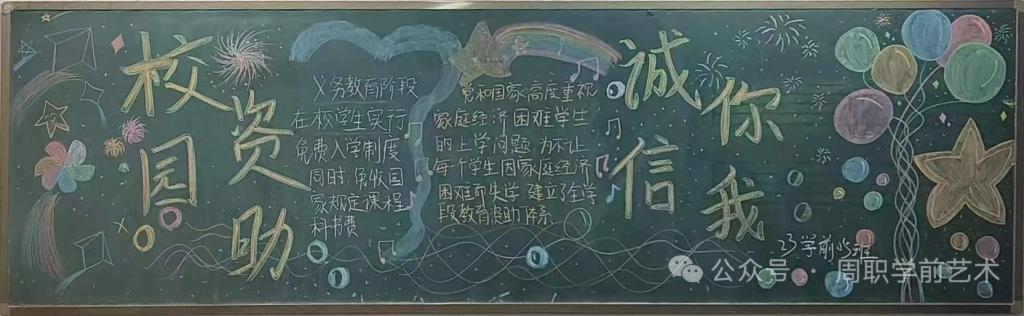 校园
资助
义务教育阶段
在校学生实行
免费入学制度
同时,免收国
家规定课程
科书费
党和国家高度重视
家庭经济困难学生
的上学问题,为不让
每个学生因家庭经济
困难而失学,建立全学
段教育资助体系
诚信
你我
23学前
公众号·周职学前艺术